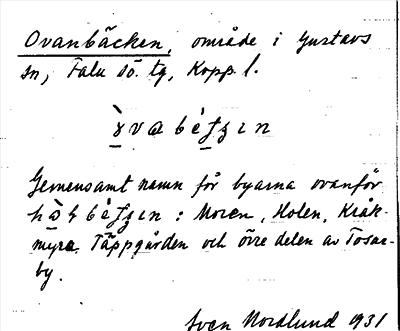 Ovanbäcken, område i Gustavs
sn, Falu sö. tg, Kopp. l.
Gemensamt namn för byarna ovanför
: Moren, Holen, Kråk-
myra, Täppgården och övre delen av Tosar-
by.
Sven Nordlund 1931